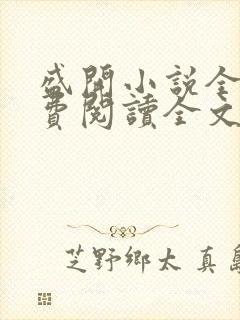 盛開小說全
費閱讀全文
芝野鄉太 真島